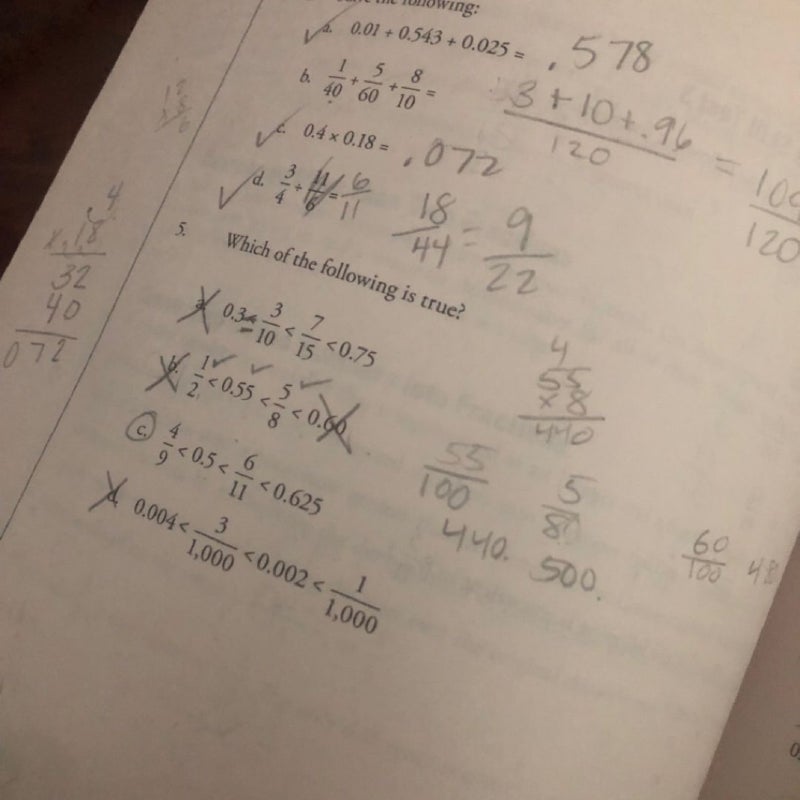 the following:
a. 0.01 + 0.543 + 0.025 = .578
b. 1/40 + 5/60 + 8/10 = 3 + 10 + .96 / 120 = 109/120
c. 0.4 × 0.18 = .072
d. 3/4 ÷ 11/6 = 6/11 18/44 = 9/22
.4
x .18
32
40
072
5. Which of the following is true?
a. 0.3 < 3/10 < 7/15 < 0.75
b. 1/2 < 0.55 < 5/8 < 0.60
c. 4/9 < 0.5 < 6/11 < 0.625
d. 0.004 < 3/1,000 < 0.002 < 1/1,000
4
55
x 8
440
55/100 5/8
440. 500.
60/100 48